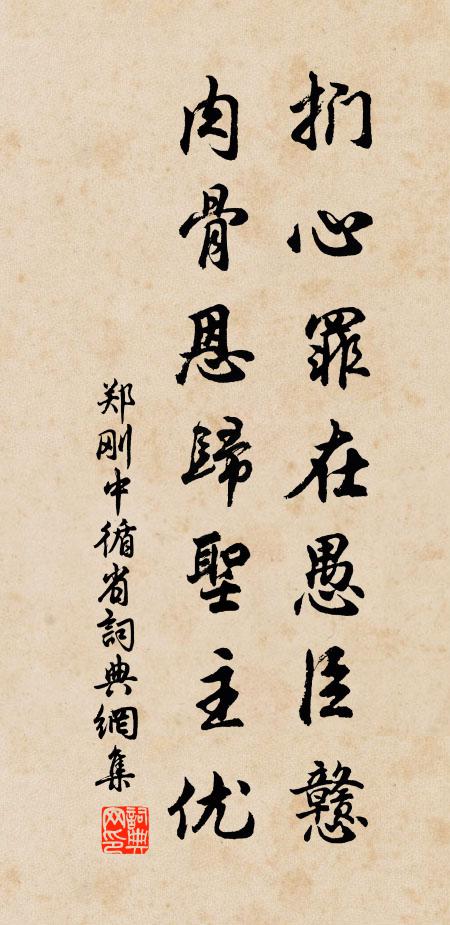 扪心罪在愚臣戆
肉骨恩歸聖主优
郑刚中循省詞典網集
詞典网印